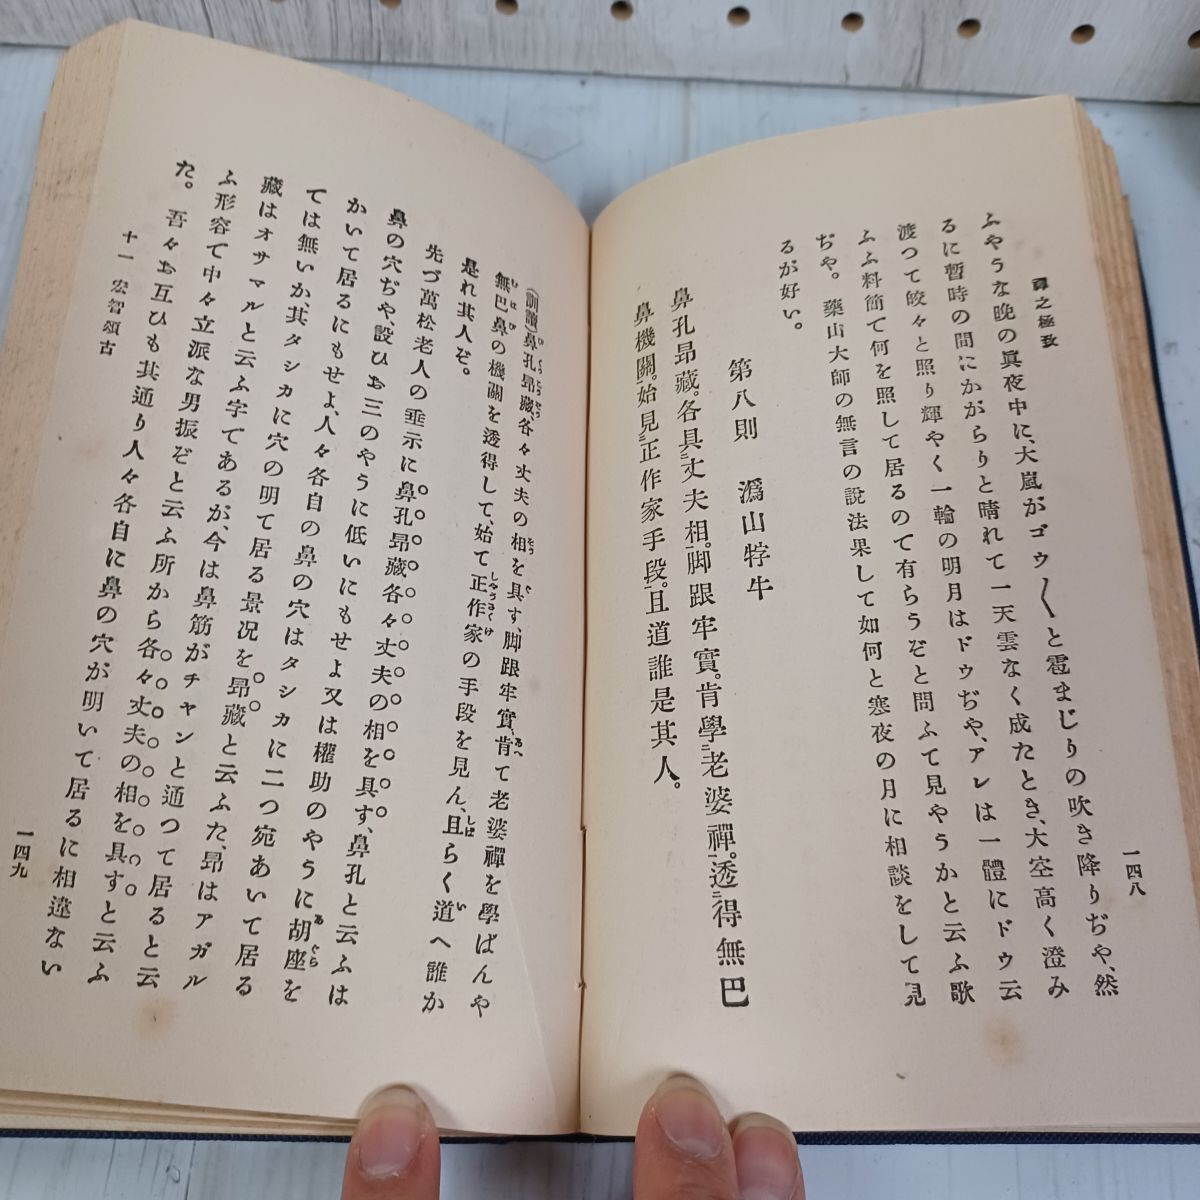 禪之極致
一四八
ふやうな晩の眞夜中に、大嵐がゴウ〱と雹まじりの吹き降りぢや、然
るに暫時の間にかがらりと晴れて一天雲なく成たとき、大空高く澄み
渡つて皎々と照り輝やく一輪の明月はドゥぢや、アレは一體にドウ云
ふふ料簡て何を照して居るのて有らうぞと問ふて見やうかと云ふ歌
ぢや。藥山大師の無言の說法果して如何と寒夜の月に相談をして見
るが好い。
第八則 潙山牸牛
鼻孔昻藏。各具丈夫相。脚跟牢實。肯學老婆禪。透得無巴
鼻機關。始見正作家手段。且道誰是其人。
(訓讀)鼻孔昻藏、各々丈夫の相を具す、脚跟牢實、肯て老婆禪を學ばんや
無巴鼻の機關を透得して、始て正作家の手段を見ん、且らく道へ誰か
是れ其人ぞ。
先づ萬松老人の垂示に鼻孔昻藏各々丈夫の相を具す、鼻孔と云ふは
鼻の穴ぢや、設ひお三のやうに低いにもせよ又は權助のやうに胡座を
かいて居るにもせよ、人々各自の鼻の穴はタシカに二つ宛あいて居る
ては無いか、其タシカに穴の明て居る景况を昻藏と云ふた、昻はアガル
藏はオサマルと云ふ字であるが、今は鼻筋がチャンと通つて居ると云
ふ形容て中々立派な男振ぞと云ふ所から各々丈夫の相を具すと云ふ
た。吾々お互ひも其通り人々各自に鼻の穴が明いて居るに相違ない
十一 宏智頌古
一四九